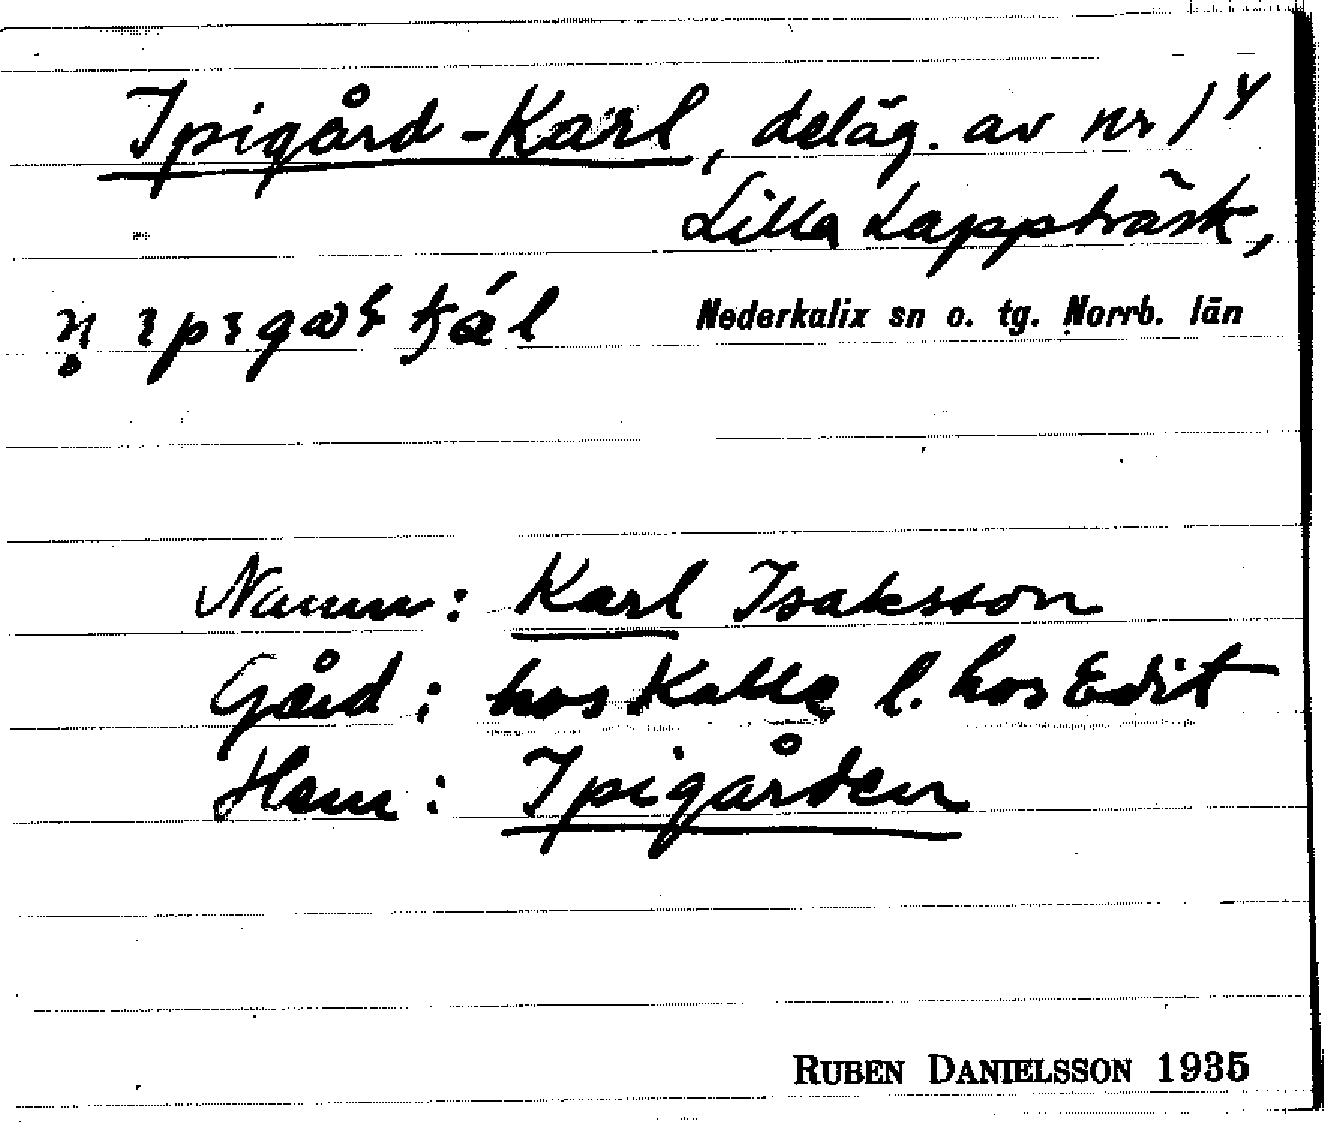 Ipigård-Karl, deläg. av nr 1⁴
Lilla Lappträsk,
Nederkalix sn o. tg. Norrb. län
Namn: Karl Isaksson
Gård: hos Kalle l. hos Edit
Hem: Ipigården
RUBEN DANIELSSON 1935